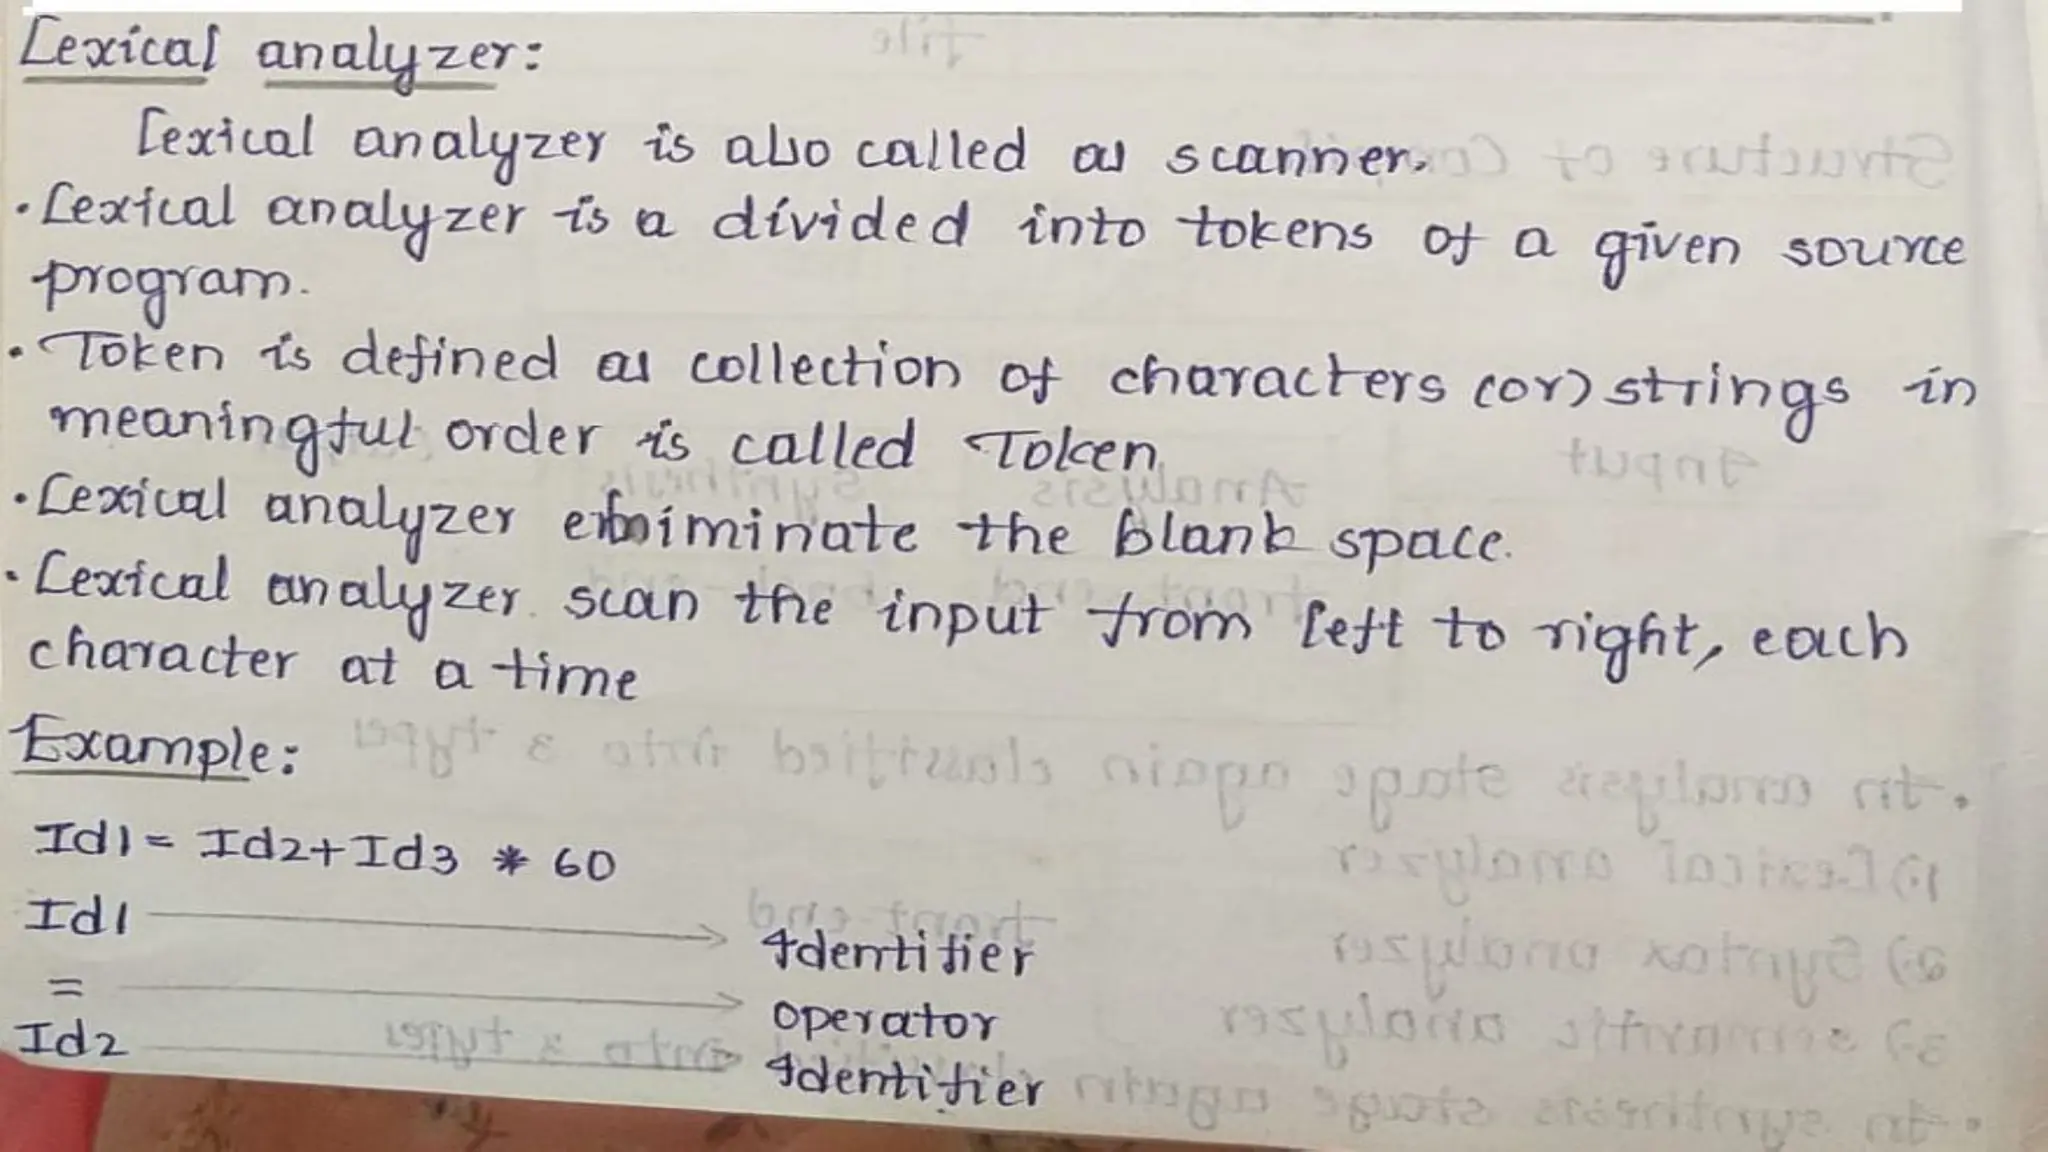 Lexical analyzer:
Lexical analyzer is also called as scanner.
• Lexical analyzer is a divided into tokens of a given source
program.
• Token is defined as collection of characters (or) strings in
meaningful order is called Token
• Lexical analyzer eliminate the blank space.
• Lexical analyzer scan the input from left to right, each
character at a time
Example:
Id1 = Id2+Id3 * 60
Id1 → Identifier
= → operator
Id2 → Identifier